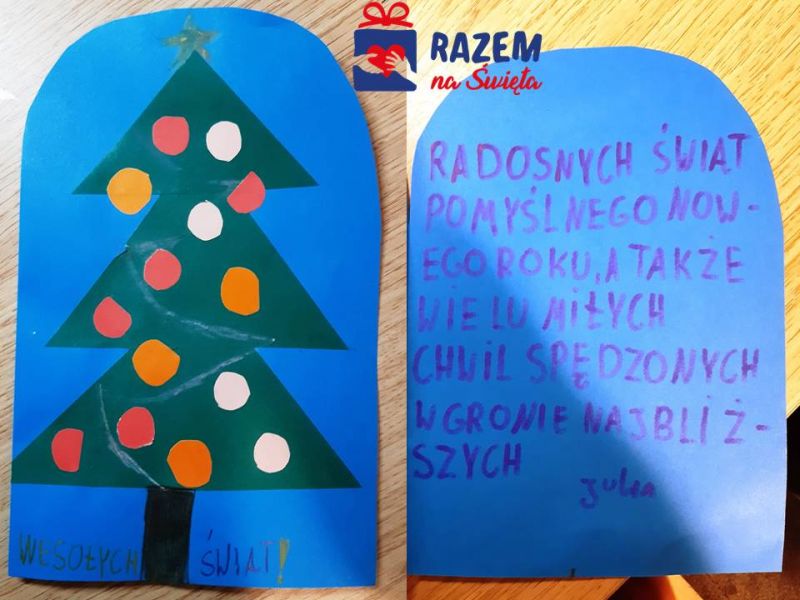 RAZEM
na Święta
WESOŁYCH ŚWIĄT!
RADOSNYCH ŚWIĄT
POMYŚLNEGO NOW-
EGO ROKU, A TAKŻE
WIELU MIŁYCH
CHWIL SPĘDZONYCH
W GRONIE NAJBLIŻ-
SZYCH
Julia